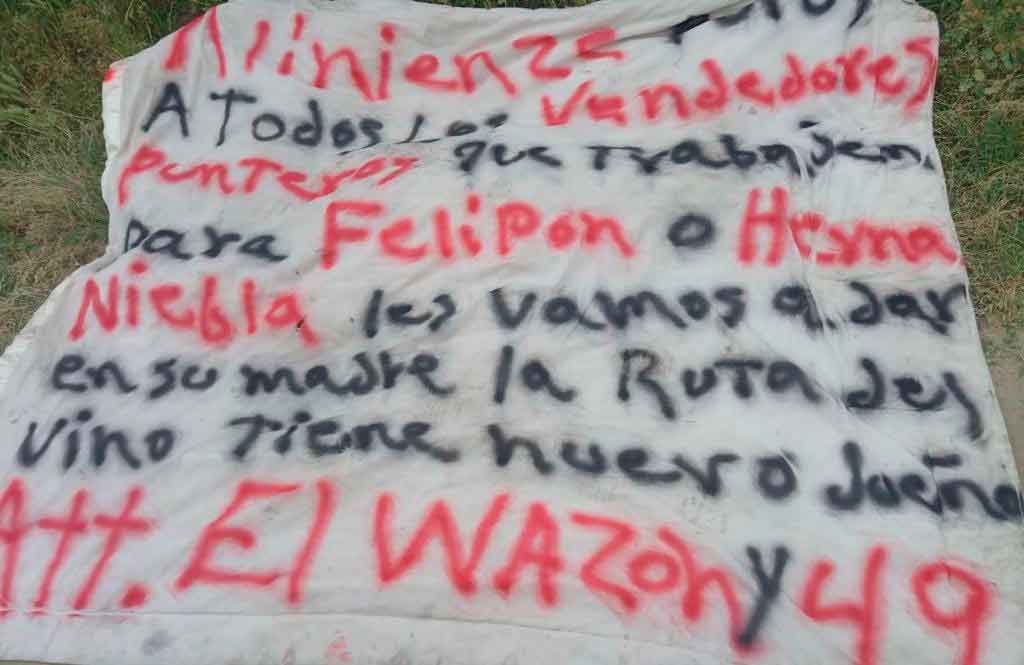 Alinienze
A Todos Los Vendedores
punteros que trabajen
para Felipon o
Niebla les vamos a dar
en su madre la RuTa del
vino Tiene nuevo dueño
Att. El WAZON y 49